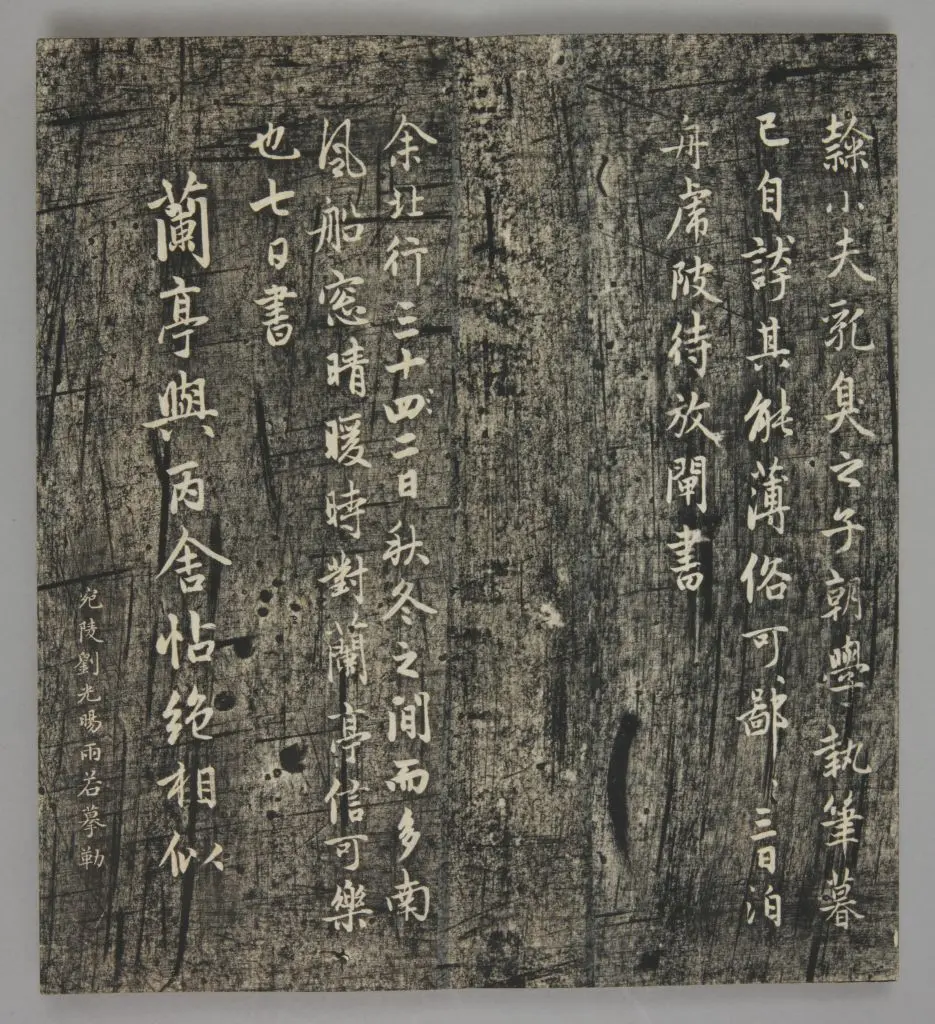 隸小夫乳臭之子朝學執筆暮
已自誇其能薄俗可鄙〻三日泊
舟虎陂待放閘書
余北行三十四二日秋冬之間而多南
風船窓晴暖時對蘭亭信可樂
也七日書
蘭亭與丙舍帖絶相似
宛陵劉光暘雨若摹勒